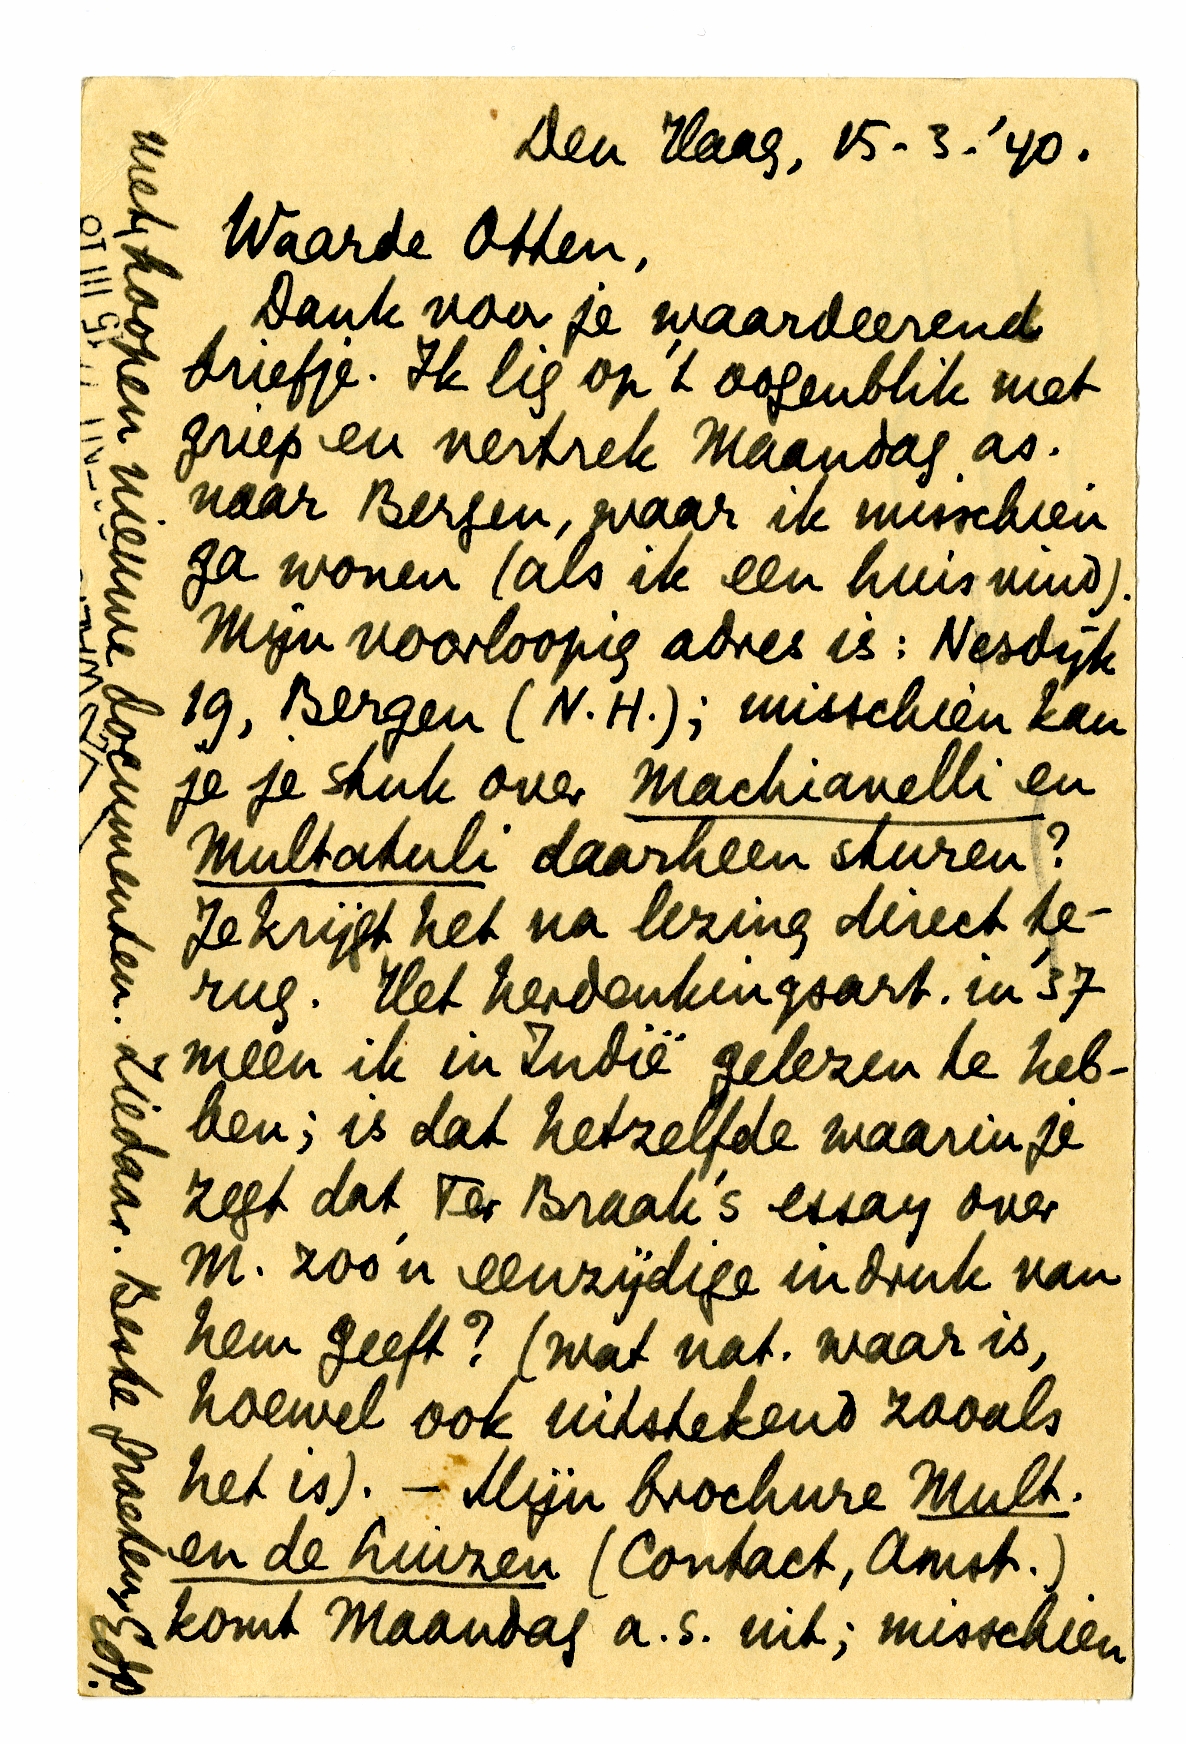 Den Haag, 15-3-'40.
Waarde Otten,
Dank voor je waardeerend
briefje. Ik lig op 't oogenblik met
griep en vertrek Maandag as.
naar Bergen, waar ik misschien
ga wonen (als ik een huis vind).
Mijn voorloopig adres is: Nesdijk
19, Bergen (N.H.); misschien kan
je je stuk over Machiavelli en
Multatuli daarheen sturen?
Je krijgt het na lezing direct te-
rug. Het herdenkingsart. in '37
meen ik in Indië gelezen te heb-
ben; is dat hetzelfde waarin je
zegt dat Ter Braak's essay over
M. zoo'n eenzijdige indruk van
hem geeft? (wat nat. waar is,
hoewel ook uitstekend zooals
het is). – Mijn brochure Mult.
en de luizen (Contact, Amst.)
komt Maandag a.s. uit; misschien
met hoopen nieuwe documenten. Ziedaar. Beste groeten, EdP.